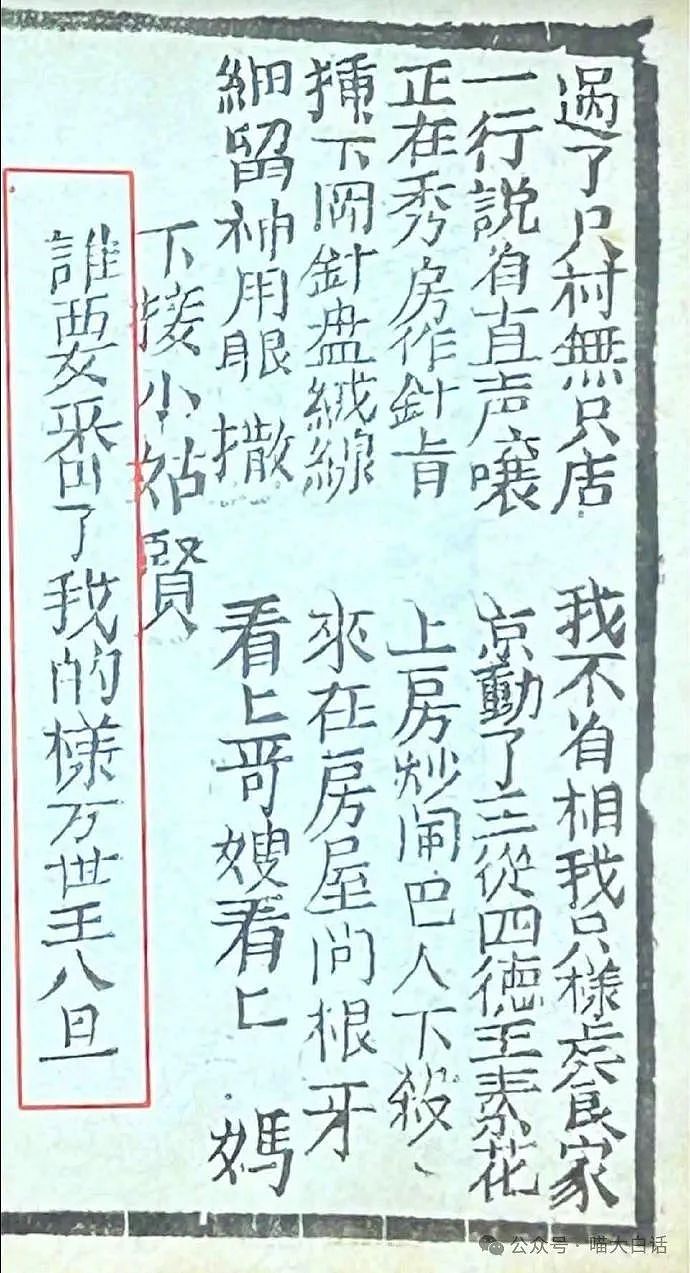 过了只村無只店 我不自相我只樣乏食家
一行説自直声嚷 京動了三從四徳王素花
正在秀房作針肯 上房炒闹巴人下殺、
揰下岡針盘絨線 來在房屋问根牙
細留神用眼撒 看匕哥嫂看匕媽
下接小姑賢
誰要番了我的樣万世王八旦
公众号·喵大白话